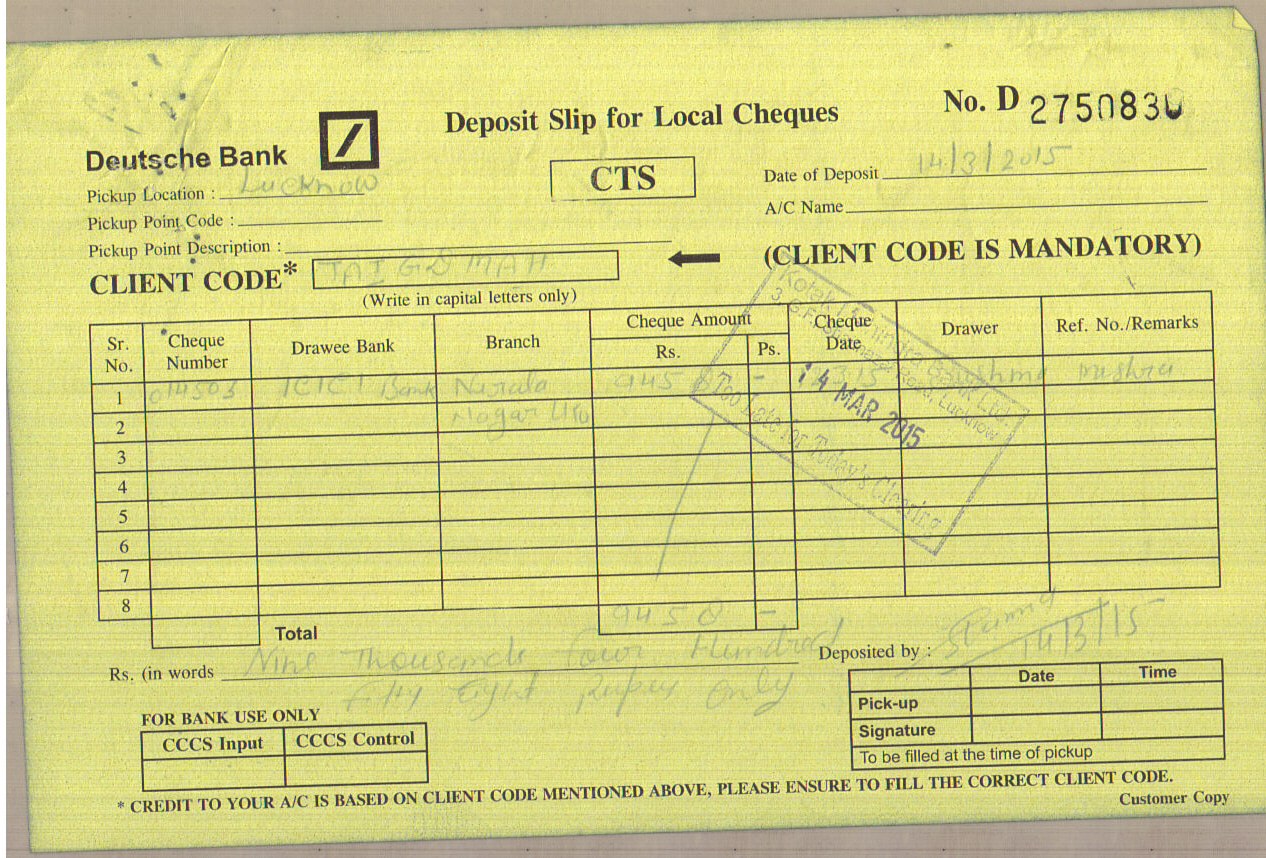 Deutsche Bank
Deposit Slip for Local Cheques
No. D 2750830
CTS
Pickup Location : Lucknow
Date of Deposit 14/3/2015
Pickup Point Code :
A/C Name
Pickup Point Description :
CLIENT CODE*
(CLIENT CODE IS MANDATORY)
(Write in capital letters only)
Sr. No. Cheque Number Drawee Bank Branch Cheque Amount Rs. Ps. Cheque Date Drawer Ref. No./Remarks
1 014503 ICICI Bank Nirala 9458 - mishra
2 Nagar
3
4
5
6
7
8
Kotak Mahindra Bank Ltd.
Lucknow
14 MAR 2015
Too Late for Today's Clearing
Total 9458 -
Rs. (in words Nine Thousands four Hundred
fifty Eight Rupees only
Deposited by :
14/3/15
Date Time
Pick-up
Signature
To be filled at the time of pickup
FOR BANK USE ONLY
CCCS Input CCCS Control
* CREDIT TO YOUR A/C IS BASED ON CLIENT CODE MENTIONED ABOVE, PLEASE ENSURE TO FILL THE CORRECT CLIENT CODE.
Customer Copy